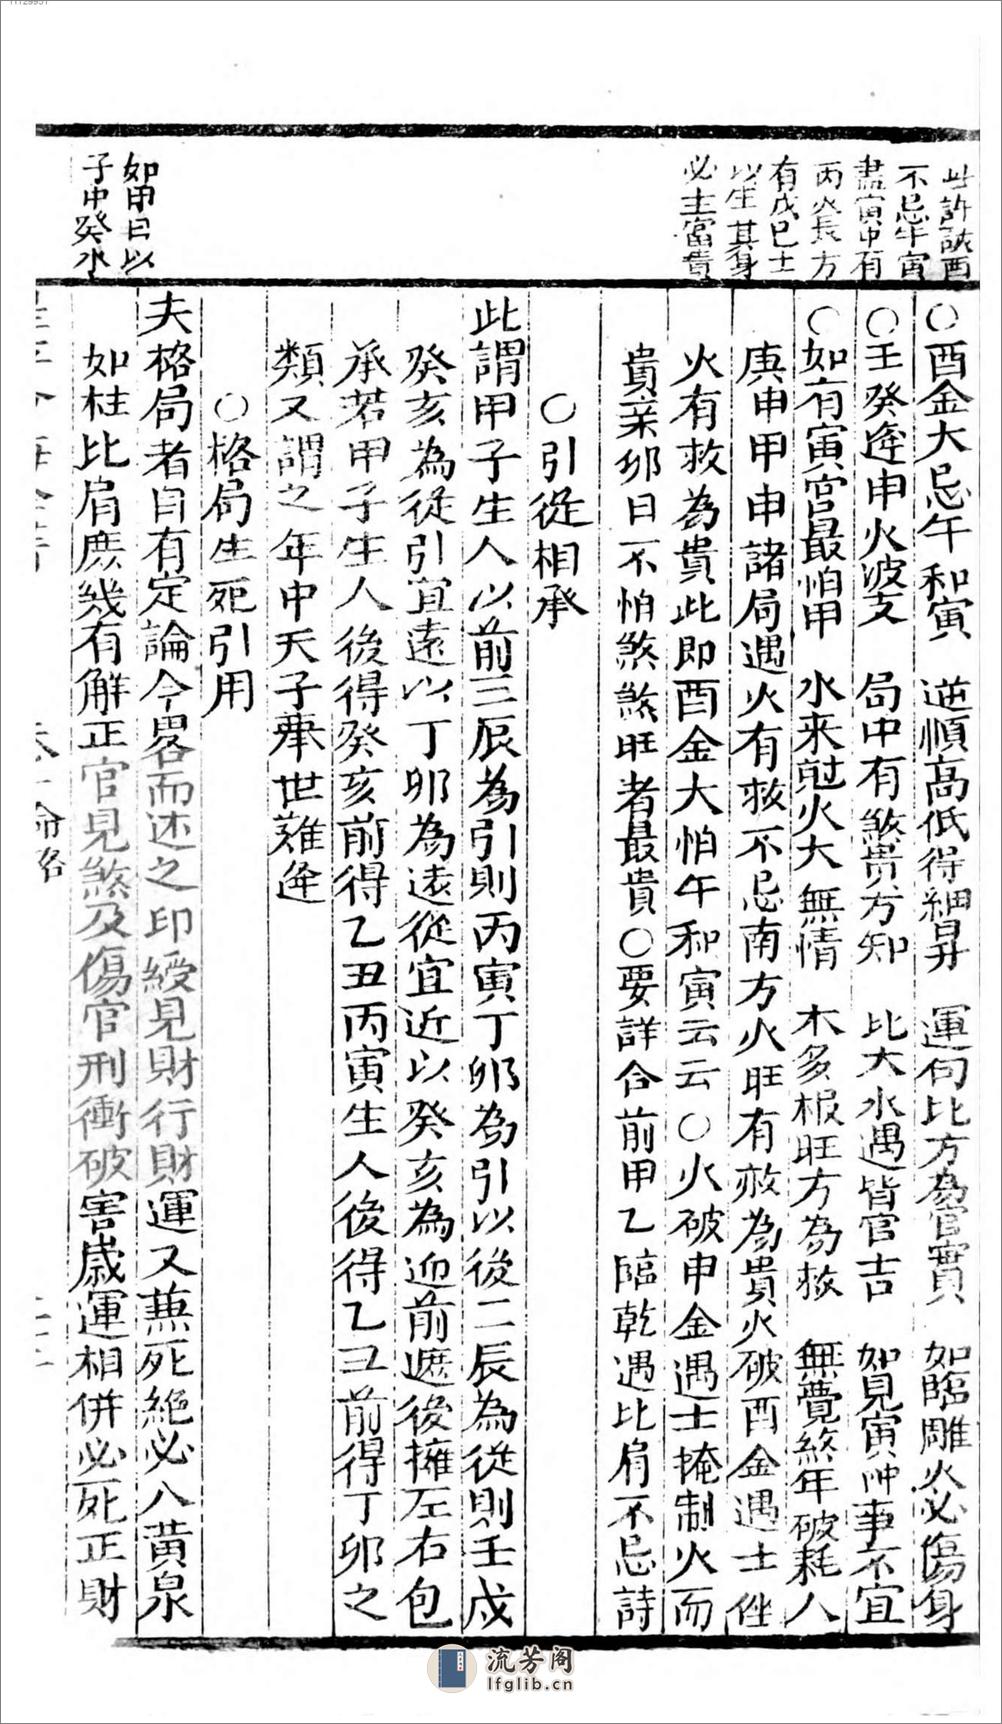 此許訣酉
不忌午寅
盡寅中有
丙火長方
有戊己土
以生其身
必主富貴
○酉金大忌午和寅 逆順高低得細昇 運向比方為官實 如臨雕火必傷身
○壬癸逢申火波支 局中有煞貴方知 比大水遇皆官吉 如見寅冲事不宜
○如有寅宮最怕甲 水来尅火大無情 木多根旺方為救 無覺煞年破耗人
庚申甲申諸局遇火有救不忌南方火旺有救為貴火破酉金遇土隹
火有救為貴此即酉金大怕午和寅云云○火破申金遇土掩制火而
貴業卯日不怕煞煞旺者最貴○要詳合前甲乙臨乾遇比肩不忌詩
○引從相承
此謂甲子生人以前三辰為引則丙寅丁卯為引以後二辰為從則壬戌
癸亥為從引宜遠以丁卯為遠從宜近以癸亥為迎前遮後擁左右包
承若甲子生人後得癸亥前得乙丑丙寅生人後得乙丑前得丁卯之
類又謂之年中天子舉世難逢
○格局生死引用
夫格局者自有定論今畧而述之印綬見財行財運又蕪死絕必入黃泉
如柱比肩庶幾有解正官見煞及傷官刑衝破害歲運相併必死正財
如甲日以
子中癸水
流芳阁
lfglib.cn